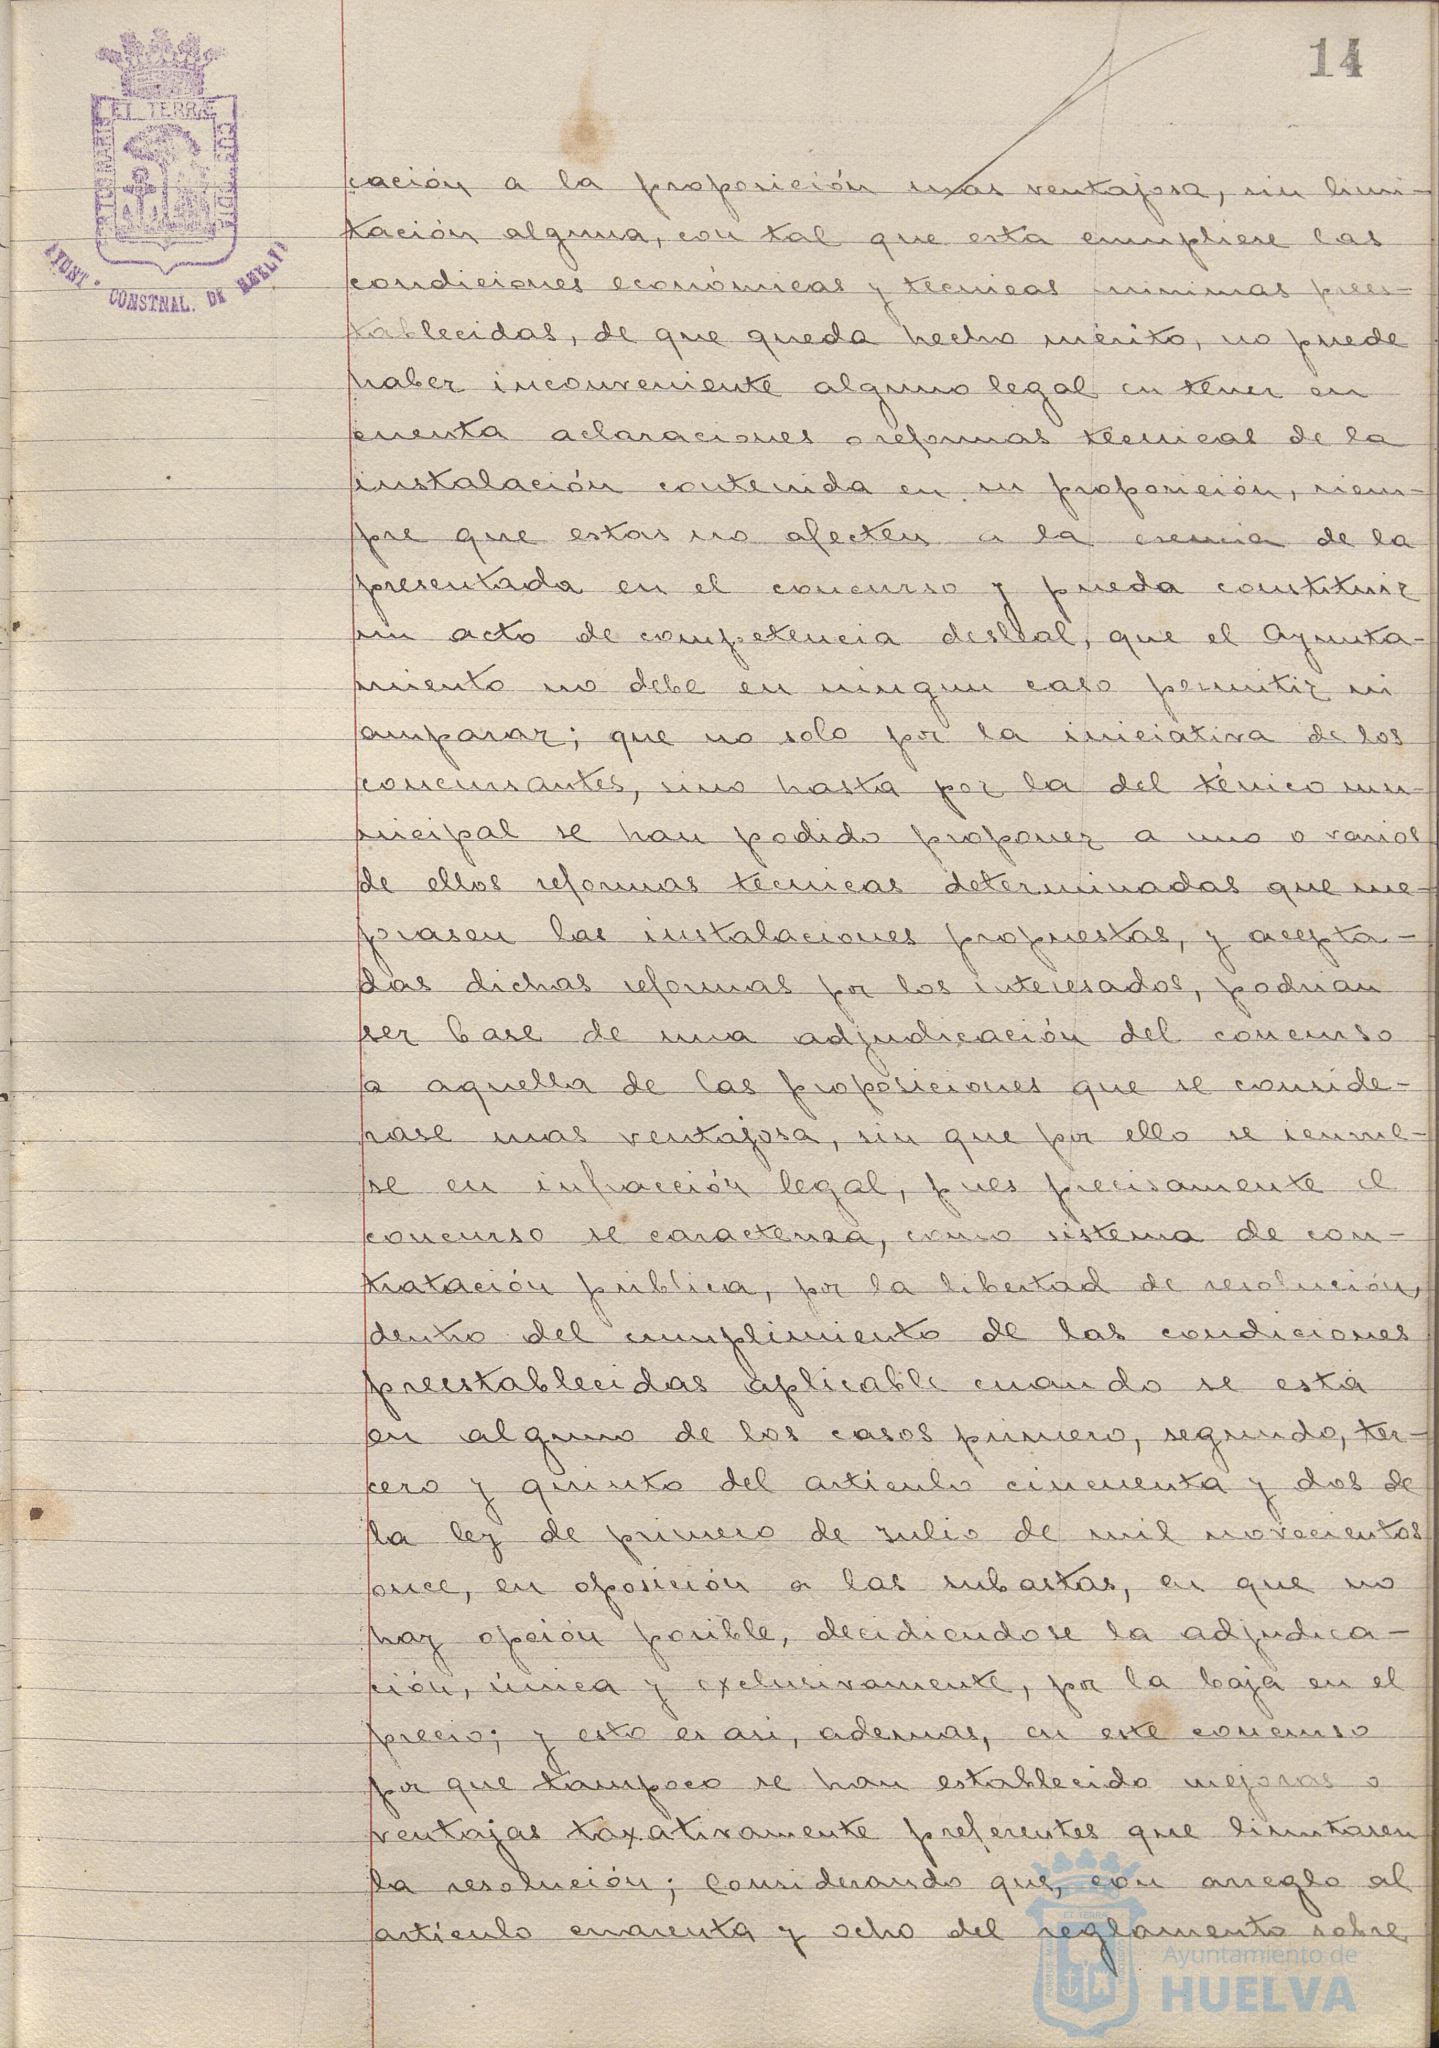 14
ET TERRÆ
PORTUS MARIS
CUSTODIA
AYUNT. CONSTNAL. DE HUELVA
cación a la proposición mas ventajosa, sin limi-
tación alguna, con tal que esta cumpliese las
condiciones económicas y técnicas minimas prees-
tablecidas, de que queda hecho mérito, no puede
haber inconveniente alguno legal en tener en
cuenta aclaraciones o reformas tecnicas de la
instalación contenida en su proposición, siem-
pre que estas no afecten a la esencia de la
presentada en el concurso y pueda constituir
un acto de competencia desleal, que el Ayunta-
miento no debe en ningun caso permitir ni
amparar; que no solo por la iniciativa de los
concursantes, sino hasta por la del ténico mu-
nicipal se han podido proponer a uno o varios
de ellos reformas tecnicas determinadas que me-
jorasen las instalaciones propuestas, y acepta-
das dichas reformas por los interesados, podrian
ser base de una adjudicación del concurso
a aquella de las proposiciones que se conside-
rase mas ventajosa, sin que por ello se
se en infracción legal, pues precisamente el
concurso se caracteriza, como sistema de con-
tratación pública, por la libertad de resolución,
dentro del cumplimiento de las condiciones
preestablecidas aplicable cuando se está
en alguno de los casos primero, segundo, ter-
cero y quinto del articulo cincuenta y dos de
la ley de primero de Julio de mil novecientos
once, en oposición a las subastas, en que no
hay opción posible, decidiendose la adjudica-
ción, única y exclusivamente, por la baja en el
precio; y esto es asi, ademas, en este concurso
por que tampoco se han establecido mejoras o
ventajas taxativamente preferentes que limitasen
la resolución; Considerando que, con arreglo al
artículo cuarenta y ocho del reglamento sobre
Ayuntamiento de
HUELVA